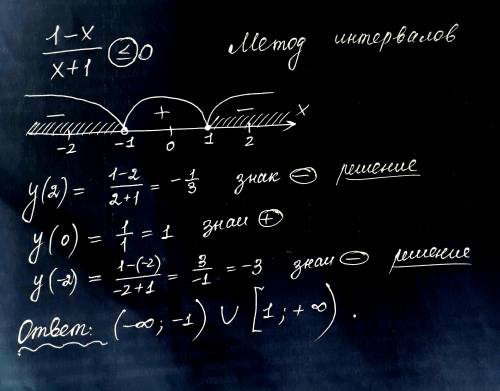 (1-x)/(x+1) ≤ 0 Метод интервалов
− + − x
-2 -1 0 1 2
y(2) = (1-2)/(2+1) = -1/3 знак − решение
y(0) = 1/1 = 1 знак +
y(-2) = (1-(-2))/(-2+1) = 3/-1 = -3 знак − решение
Ответ: (-∞; -1) ∪ [1; +∞).